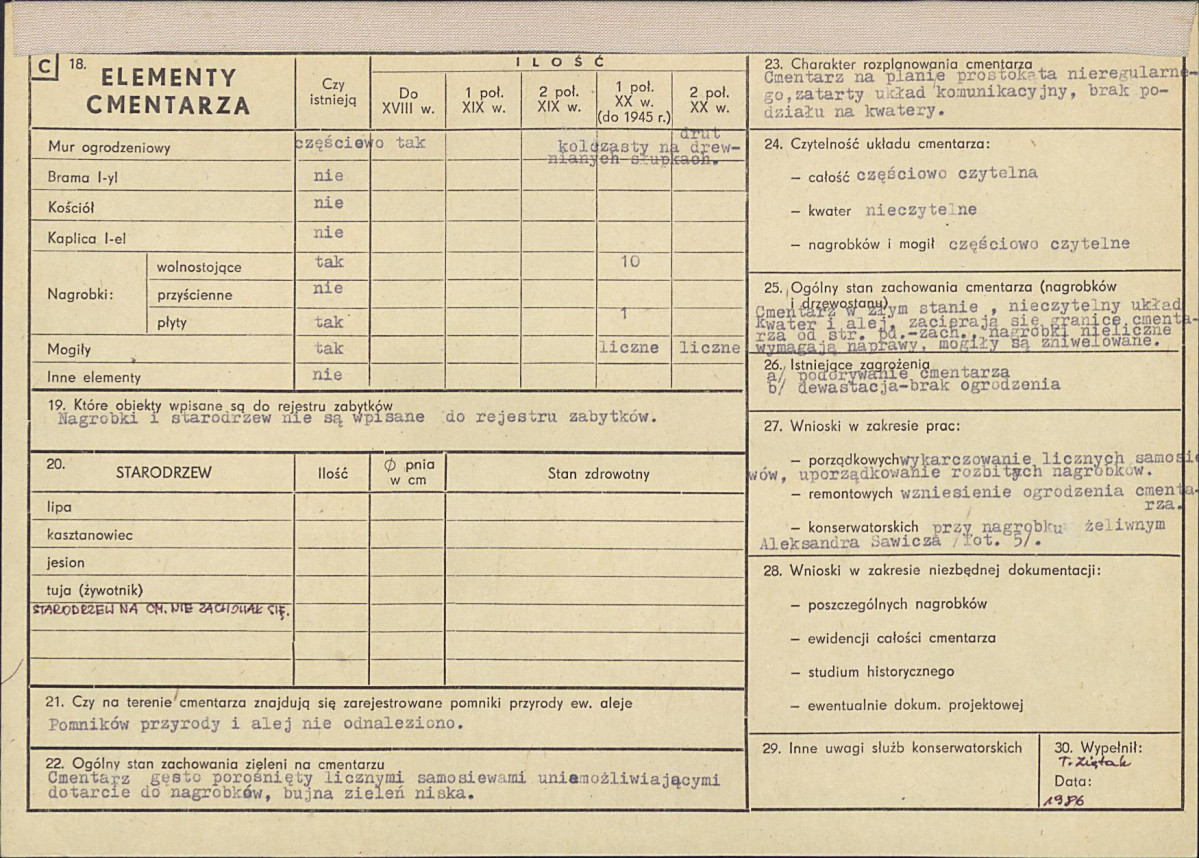 C 18. ELEMENTY CMENTARZA
Czy istnieją
ILOŚĆ
Do XVIII w.
1 poł. XIX w.
2 poł. XIX w.
1 poł. XX w. (do 1945 r.)
2 poł. XX w.
Mur ogrodzeniowy częściowo tak drut
kolczasty na drew-
nianych słupkach.
Brama I-yl nie
Kościół nie
Kaplica I-el nie
Nagrobki:
wolnostojące tak 10
przyścienne nie
płyty tak 1
Mogiły tak liczne liczne
Inne elementy nie
19. Które obiekty wpisane są do rejestru zabytków
Nagrobki i starodrzew nie są wpisane do rejestru zabytków.
20. STARODRZEW Ilość Ø pnia w cm Stan zdrowotny
lipa
kasztanowiec
jesion
tuja (żywotnik)
STARODRZEW NA CM. NIE ZACHOWAŁ SIĘ.
21. Czy na terenie cmentarza znajdują się zarejestrowane pomniki przyrody ew. aleje
Pomników przyrody i alej nie odnaleziono.
22. Ogólny stan zachowania zieleni na cmentarzu
Cmentarz gęsto porośnięty licznymi samosiewami uniemożliwiającymi
dotarcie do nagrobków, bujna zieleń niska.
23. Charakter rozplanowania cmentarza
Cmentarz na planie prostokąta nieregularne-
go, zatarty układ komunikacyjny, brak po-
działu na kwatery.
24. Czytelność układu cmentarza:
– całość częściowo czytelna
– kwater nieczytelne
– nagrobków i mogił częściowo czytelne
25. Ogólny stan zachowania cmentarza (nagrobków
i drzewostanu)
Cmentarz w złym stanie , nieczytelny układ
kwater i alej, zacierają się granice cmenta-
rza od str. pd.-zach., nagrobki nieliczne
wymagają naprawy, mogiły są zniwelowane.
26. Istniejące zagrożenia
a/ podorywanie cmentarza
b/ dewastacja-brak ogrodzenia
27. Wnioski w zakresie prac:
– porządkowych wykarczowanie licznych samosie
wów, uporządkowanie rozbitych nagrobków.
– remontowych wzniesienie ogrodzenia cmenta-
rza.
– konserwatorskich przy nagrobku żeliwnym
Aleksandra Sawicza /fot. 5/.
28. Wnioski w zakresie niezbędnej dokumentacji:
– poszczególnych nagrobków
– ewidencji całości cmentarza
– studium historycznego
– ewentualnie dokum. projektowej
29. Inne uwagi służb konserwatorskich
30. Wypełnił:
T. Ziętak
Data:
1986